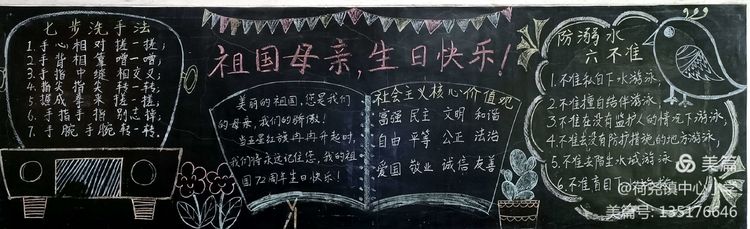 七步洗手法
1.手心相对搓一搓;
2.手背相靠噌一噌;
3.手指中缝相交叉;
4.指尖指尖转一转;
5.握成拳来搓一搓;
6.手指手指别忘锋;
7.手腕手腕转一转.
祖国母亲,生日快乐!
美丽的祖国,您是我们
的母亲,我们的骄傲!
当五星红旗冉冉升起时,
我们将永远记住您,我的祖
国72周年生日快乐!
社会主义核心价值观
富强 民主 文明 和谐
自由 平等 公正 法治
爱国 敬业 诚信 友善
防溺水
六不准
1.不准私自下水游泳,
2.不准擅自结伴游泳,
3.不准在没有监护人的情况下游泳,
4.不准去没有防护措施的地方游泳,
5.不准去陌生水域游泳
6.不准盲目下水
美篇
@荷尧镇中心小学
美篇号: 135176646